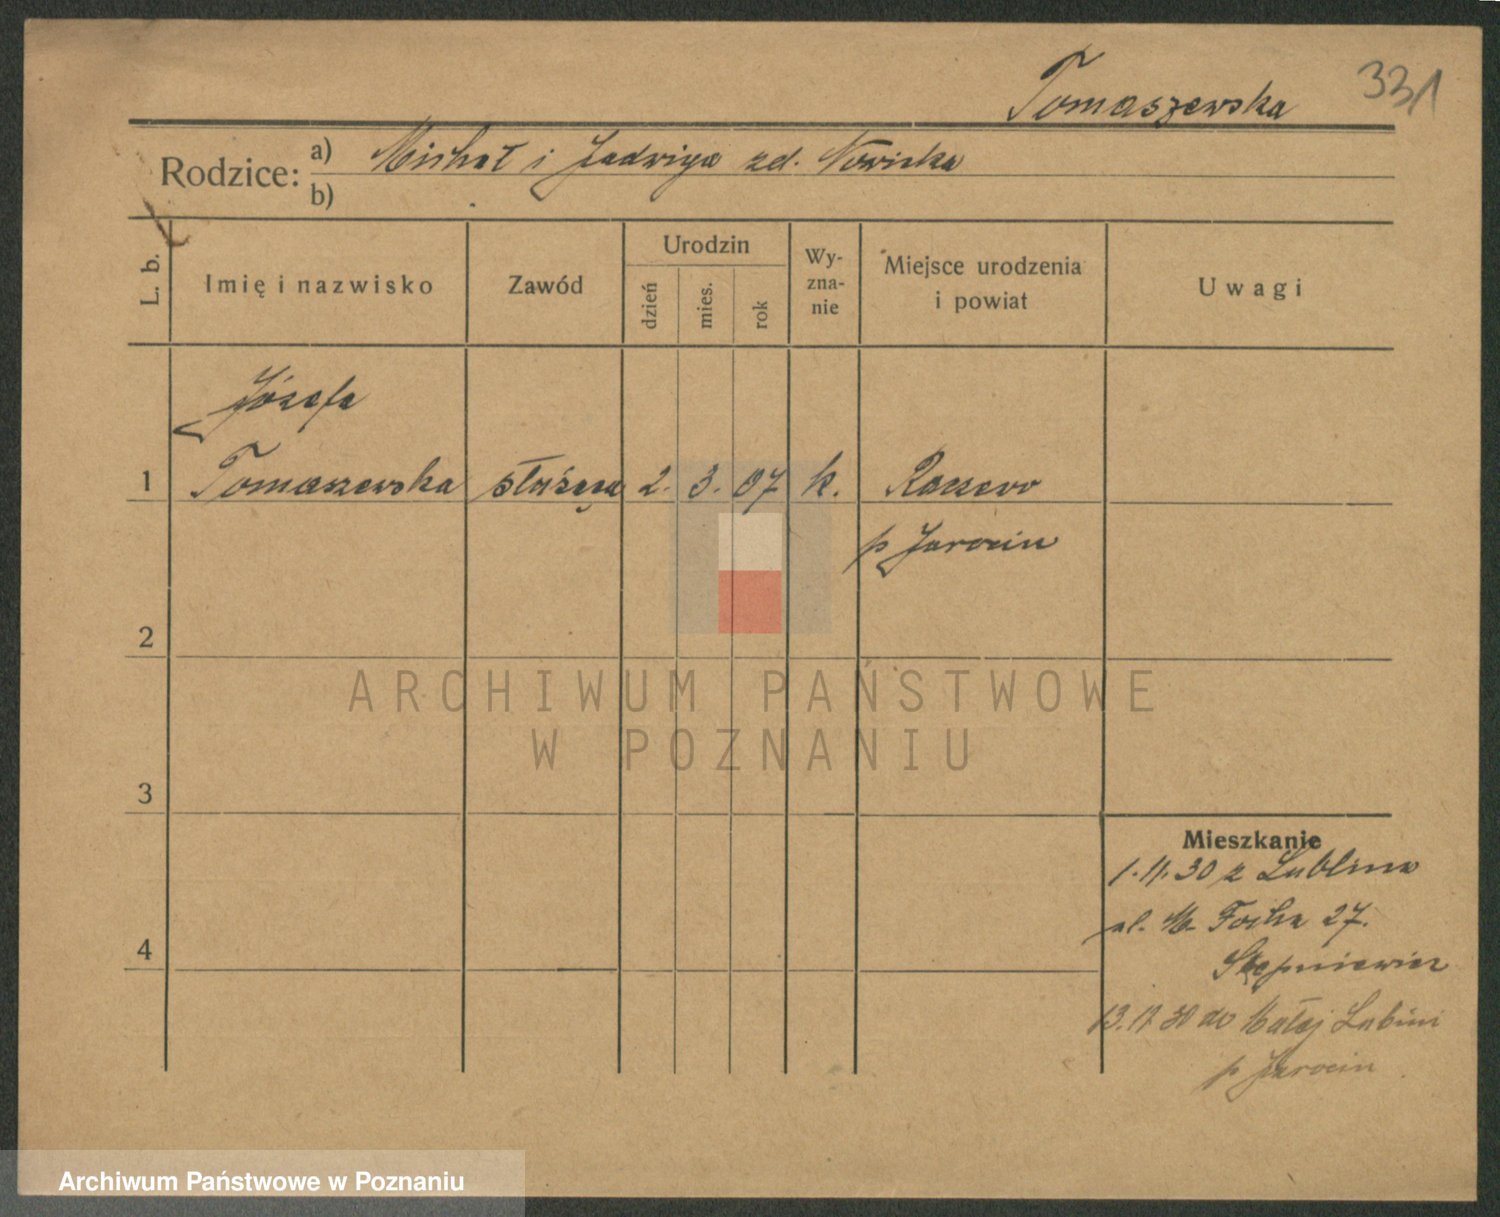 Tomaszewska 331
Rodzice: a) Michał i Jadwiga zd. Nowicka
b)
L. b. Imię i nazwisko Zawód Urodzin dzień mies. rok Wy-zna-nie Miejsce urodzenia i powiat Uwagi
Józefa
1 Tomaszewska służąca 2. 3. 07 k. Raszewo
p Jarocin
2
ARCHIWUM PAŃSTWOWE
W POZNANIU
3
Mieszkanie
1.11.30 z Lublina
ul. M. Focha 27.
4
Stępniewicz
13.12 30 do Małej Lubini
p Jarocin
Archiwum Państwowe w Poznaniu